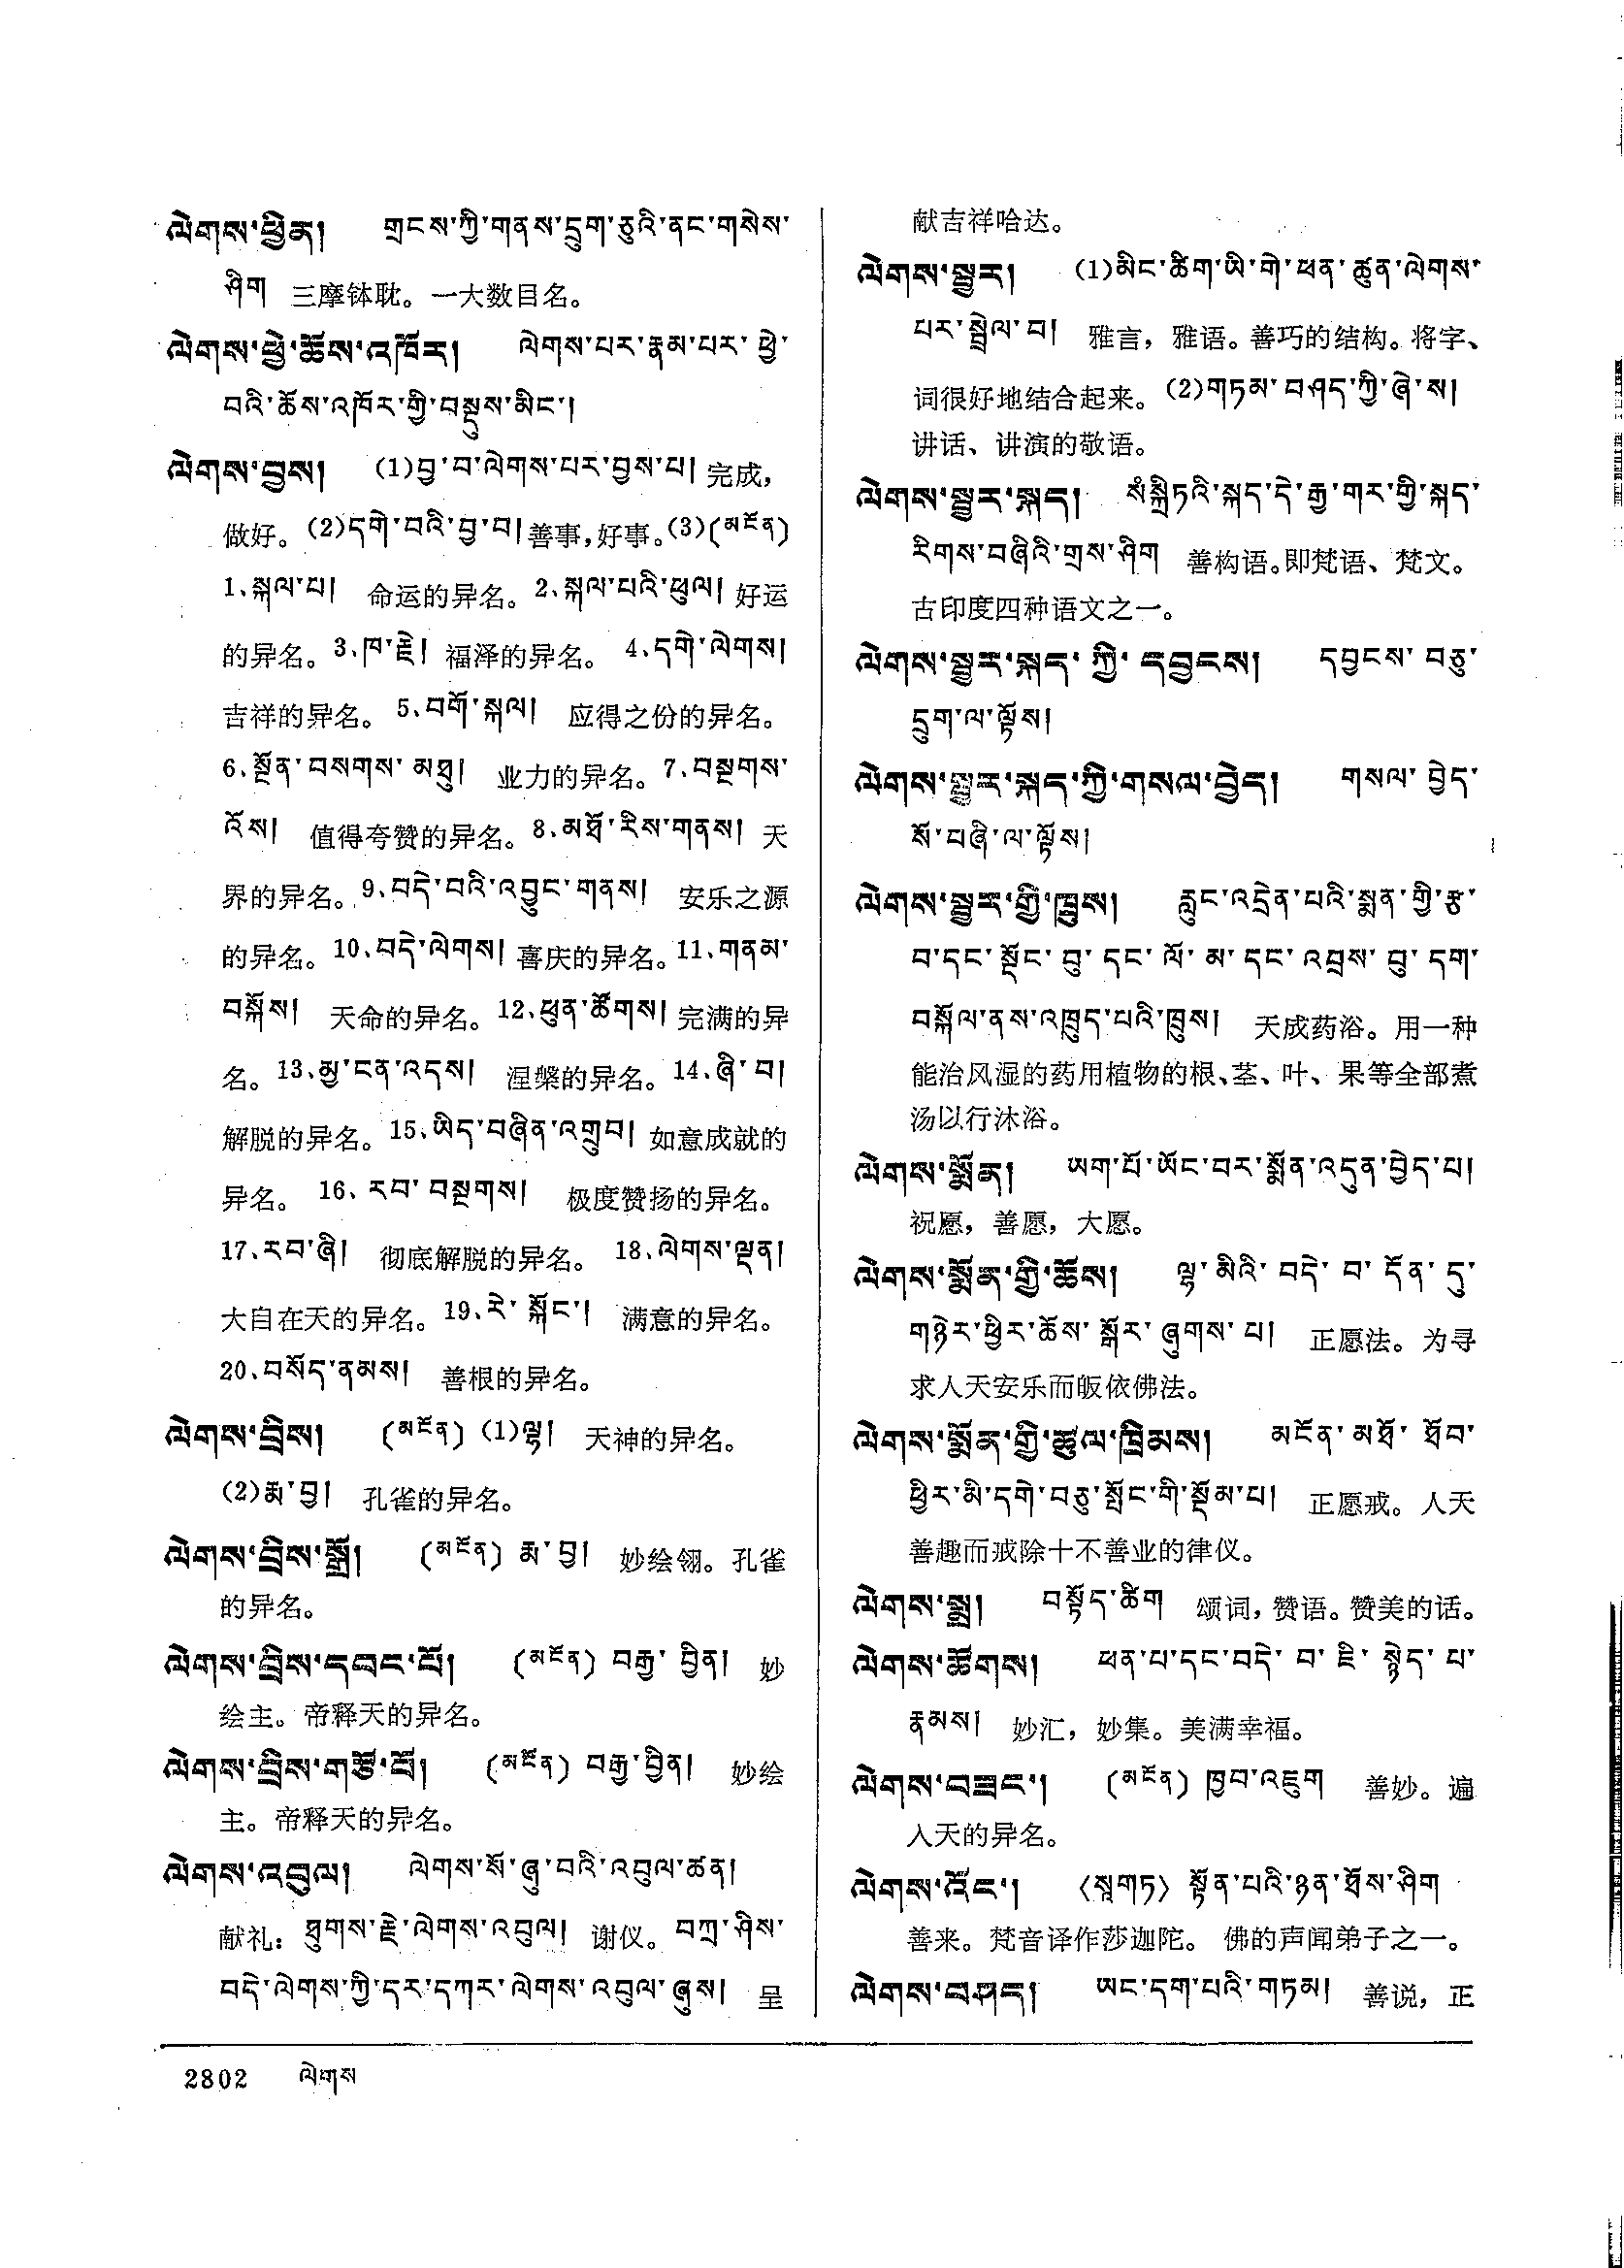 ལེགས་ཕྱིན། གྲངས་ཀྱི་གནས་དྲུག་ཅུའི་ནང་གསེས་
ཤིག 三摩钵耽。一大数目名。
ལེགས་ཕྱེ་ཆོས་འཁོར། ལེགས་པར་རྣམ་པར་ཕྱེ་
བའི་ཆོས་འཁོར་གྱི་བསྡུས་མིང་།
ལེགས་བྱས། (1)བྱ་བ་ལེགས་པར་བྱས་པ། 完成，
做好。(2)དགེ་བའི་བྱ་བ། 善事，好事。(3)(མངོན)
1、སྐལ་པ། 命运的异名。2、སྐལ་པའི་ཕུལ། 好运
的异名。3、ཁ་རྗེ། 福泽的异名。 4、དགེ་ལེགས།
吉祥的异名。 5、བགོ་སྐལ། 应得之份的异名。
6、སྔོན་བསགས་མཐུ། 业力的异名。7、བསྔགས་
འོས། 值得夸赞的异名。8、མཐོ་རིས་གནས། 天
界的异名。9、བདེ་བའི་འབྱུང་གནས། 安乐之源
的异名。10、བདེ་ལེགས། 喜庆的异名。11、གནམ་
བསྐོས། 天命的异名。12、ཕུན་ཚོགས། 完满的异
名。13、མྱ་ངན་འདས། 涅槃的异名。14、ཞི་བ།
解脱的异名。15、ཡིད་བཞིན་འགྲུབ། 如意成就的
异名。 16、རབ་བསྔགས། 极度赞扬的异名。
17、རབ་ཞི། 彻底解脱的异名。 18、ལེགས་ལྡན།
大自在天的异名。19、རེ་སྐོང་། 满意的异名。
20、བསོད་ནམས། 善根的异名。
ལེགས་བྲིས། (མངོན) (1)ལྷ། 天神的异名。
(2)རྨ་བྱ། 孔雀的异名。
ལེགས་བྲིས་སྒྲོ། (མངོན) རྨ་བྱ། 妙绘翎。孔雀
的异名。
ལེགས་བྲིས་དབང་པོ། (མངོན) བརྒྱ་བྱིན། 妙
绘主。帝释天的异名。
ལེགས་བྲིས་གཙོ་བོ། (མངོན) བརྒྱ་བྱིན། 妙绘
主。帝释天的异名。
ལེགས་འབུལ། ལེགས་སོ་ཞུ་བའི་འབུལ་ཚན།
献礼：ཐུགས་རྗེ་ལེགས་འབུལ། 谢仪。བཀྲ་ཤིས་
བདེ་ལེགས་ཀྱི་དར་དཀར་ལེགས་འབུལ་ཞུས། 呈
献吉祥哈达。
ལེགས་སྦྱར། (1)མིང་ཚིག་ཡི་གེ་ཕན་ཚུན་ལེགས་
པར་སྦྲེལ་བ། 雅言，雅语。善巧的结构。将字、
词很好地结合起来。(2)གཏམ་བཤད་ཀྱི་ཞེ་ས།
讲话、讲演的敬语。
ལེགས་སྦྱར་སྐད། སཾསྐྲིཏའི་སྐད་དེ་རྒྱ་གར་གྱི་སྐད་
རིགས་བཞིའི་གྲས་ཤིག 善构语。即梵语、梵文。
古印度四种语文之一。
ལེགས་སྦྱར་སྐད་ཀྱི་དབྱངས། དབྱངས་བཅུ་
དྲུག་ལ་ལྟོས།
ལེགས་སྦྱར་སྐད་ཀྱི་གསལ་བྱེད། གསལ་བྱེད་
སོ་བཞི་ལ་ལྟོས།
ལེགས་སྦྱར་གྱི་ཁྲུས། རླུང་འདྲེན་པའི་སྨན་གྱི་རྩ་
བ་དང་སྡོང་བུ་དང་ལོ་མ་དང་འབྲས་བུ་དག་
བསྐོལ་ནས་འཁྲུད་པའི་ཁྲུས། 天成药浴。用一种
能治风湿的药用植物的根、茎、叶、果等全部煮
汤以行沐浴。
ལེགས་སྨོན། ཡག་པོ་ཡོང་བར་སྨོན་འདུན་བྱེད་པ།
祝愿，善愿，大愿。
ལེགས་སྨོན་གྱི་ཆོས། ལྷ་མིའི་བདེ་བ་དོན་དུ་
གཉེར་ཕྱིར་ཆོས་སྒོར་ཞུགས་པ། 正愿法。为寻
求人天安乐而皈依佛法。
ལེགས་སྨོན་གྱི་ཚུལ་ཁྲིམས། མངོན་མཐོ་ཐོབ་
ཕྱིར་མི་དགེ་བཅུ་སྤོང་གི་སྡོམ་པ། 正愿戒。人天
善趣而戒除十不善业的律仪。
ལེགས་སྨྲ། བསྟོད་ཚིག 颂词，赞语。赞美的话。
ལེགས་ཚོགས། ཕན་པ་དང་བདེ་བ་ཇི་སྙེད་པ་
རྣམས། 妙汇，妙集。美满幸福。
ལེགས་བཟང་། (མངོན) ཁྱབ་འཇུག 善妙。遍
入天的异名。
ལེགས་འོང་། 〈སཱུགཏ〉 སྟོན་པའི་ཉན་ཐོས་ཤིག
善来。梵音译作莎迦陀。 佛的声闻弟子之一。
ལེགས་བཤད། ཡང་དག་པའི་གཏམ། 善说，正
2802 ལེགས